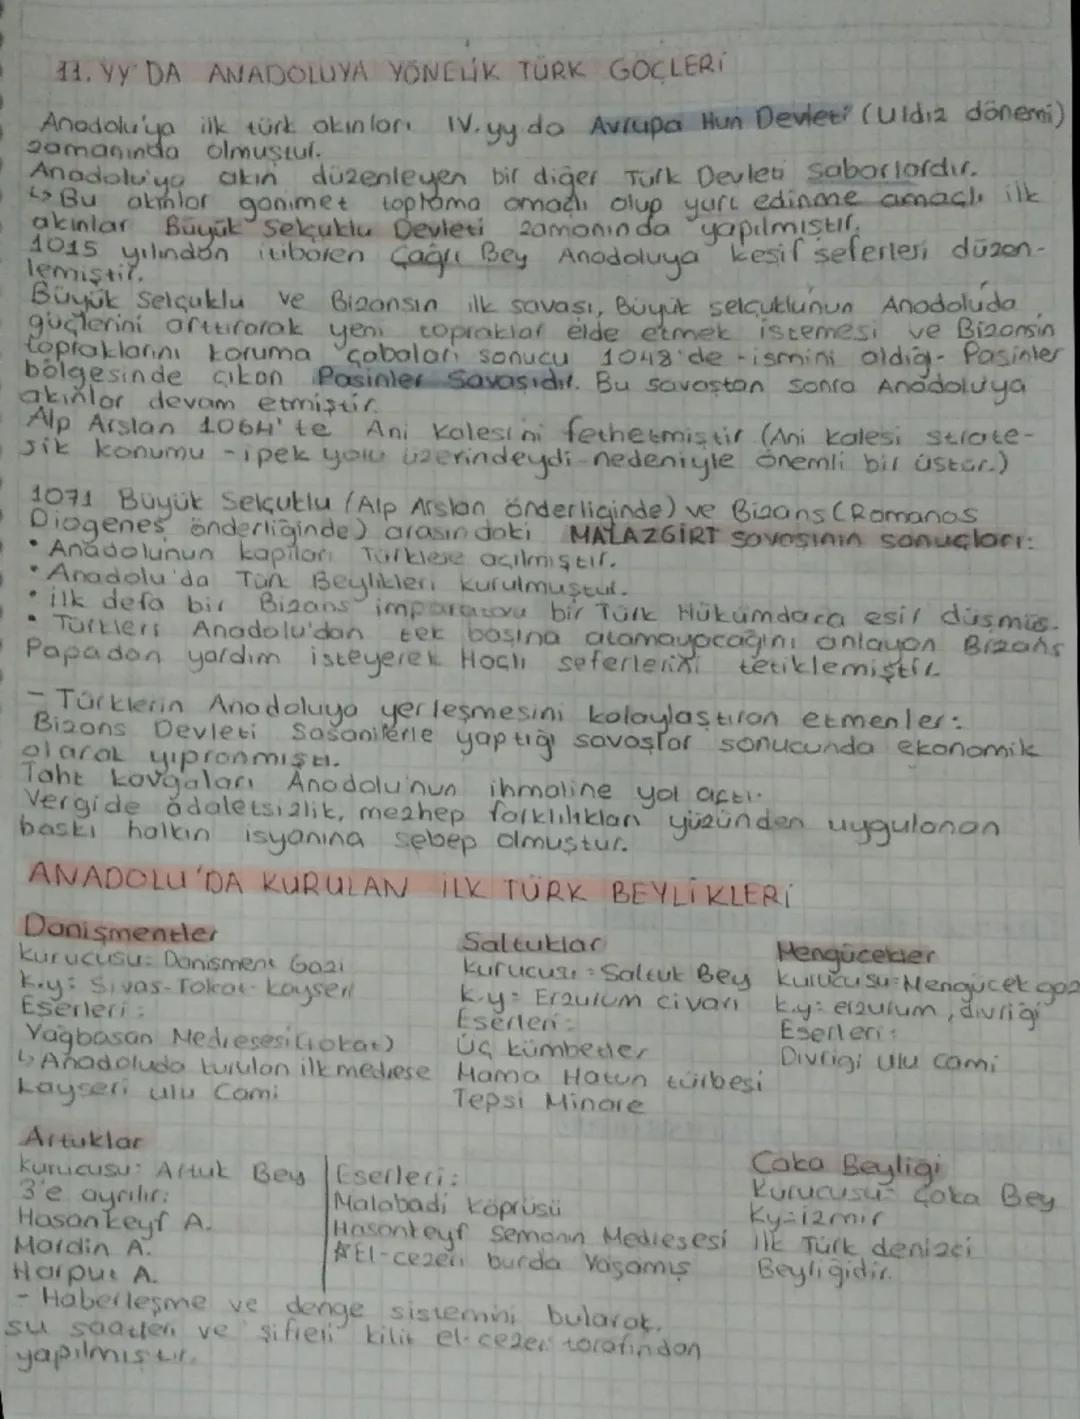 11. YY'DA ANADOLUYA YÖNELİK TÜRK GÖÇLERİ
Anadolu'ya ilk türk akınları IV. yy da Avrupa Hun Devleti (Uldız dönemi)
zamanında olmuştur.
Anadolu'ya akın düzenleyen bir diğer Türk Devleti Sabarlardır.
↳ Bu akınlar ganimet toplama amaçlı olup yurt edinme amaçlı ilk
akınlar Büyük Selçuklu Devleti zamanında yapılmıştır.
1015 yılından itibaren Çağrı Bey Anadoluya keşif seferleri düzen-
lemiştir.
Büyük Selçuklu ve Bizansın ilk savaşı, Büyük selçuklunun Anadoluda
güçlerini arttırarak yeni topraklar elde etmek istemesi ve Bizansın
topraklarını koruma çabaları sonucu 1048'de -ismini aldığı- Pasinler
bölgesinde çıkan Pasinler Savaşıdır. Bu savaştan sonra Anadoluya
akınlar devam etmiştir.
Alp Arslan 1064'te Ani Kalesini fethetmiştir (Ani kalesi strate-
jik konumu -ipek yolu üzerindeydi- nedeniyle önemli bir üstür.)
1071 Büyük Selçuklu (Alp Arslan önderliğinde) ve Bizans (Romanos
Diogenes önderliğinde) arasındaki MALAZGİRT savaşının sonuçları:
• Anadolunun kapıları Türklere açılmıştır.
• Anadolu'da Türk Beylikleri kurulmuştur.
• ilk defa bir Bizans imparatoru bir Türk Hükümdara esir düşmüş.
• Türkleri Anadolu'dan tek başına atamayacağını anlayan Bizans
Papadan yardım isteyerek Haçlı seferlerini tetiklemiştir.
- Türklerin Anadoluya yerleşmesini kolaylaştıran etmenler:
Bizans Devleti Sasanilerle yaptığı savaşlar sonucunda ekonomik
olarak yıpranmıştı.
Taht kavgaları Anadolu'nun ihmaline yol açtı.
Vergide adaletsizlik, mezhep farklılıkları yüzünden uygulanan
baskı halkın isyanına sebep olmuştur.
ANADOLU'DA KURULAN İLK TÜRK BEYLİKLERİ
Danişmentler
Kurucusu: Danişment Gazi
K.y: Sivas-Tokat-Kayseri
Eserleri:
Yağıbasan Medresesi (tokat)
↳ Anadoluda kurulan ilk medrese
Kayseri ulu Cami
Saltuklar
Kurucusu: Saltuk Bey
K.y: Erzurum civarı
Eserleri:
Üç kümbetler
Mama Hatun türbesi
Tepsi Minare
Mengücekler
Kurucusu: Mengücek gazi
K.y: erzurum, divriği
Eserleri:
Divrigi ulu cami
Artuklar
Kurucusu: Artuk Bey
3'e ayrılır:
Hasankeyf A.
Mardin A.
Harput A.
Eserleri:
Malabadi köprüsü
Hasankeyf Semanın Medresesi
☆ El-cezeri burda Yaşamış
- Haberleşme ve denge sistemini bularak.
su saatleri ve şifreli kilit el-cezeri tarafından
yapılmıştır.
Caka Beyliği
Kurucusu: Çaka Bey
Ky: izmir
ilk Türk denizci
Beyliğidir.